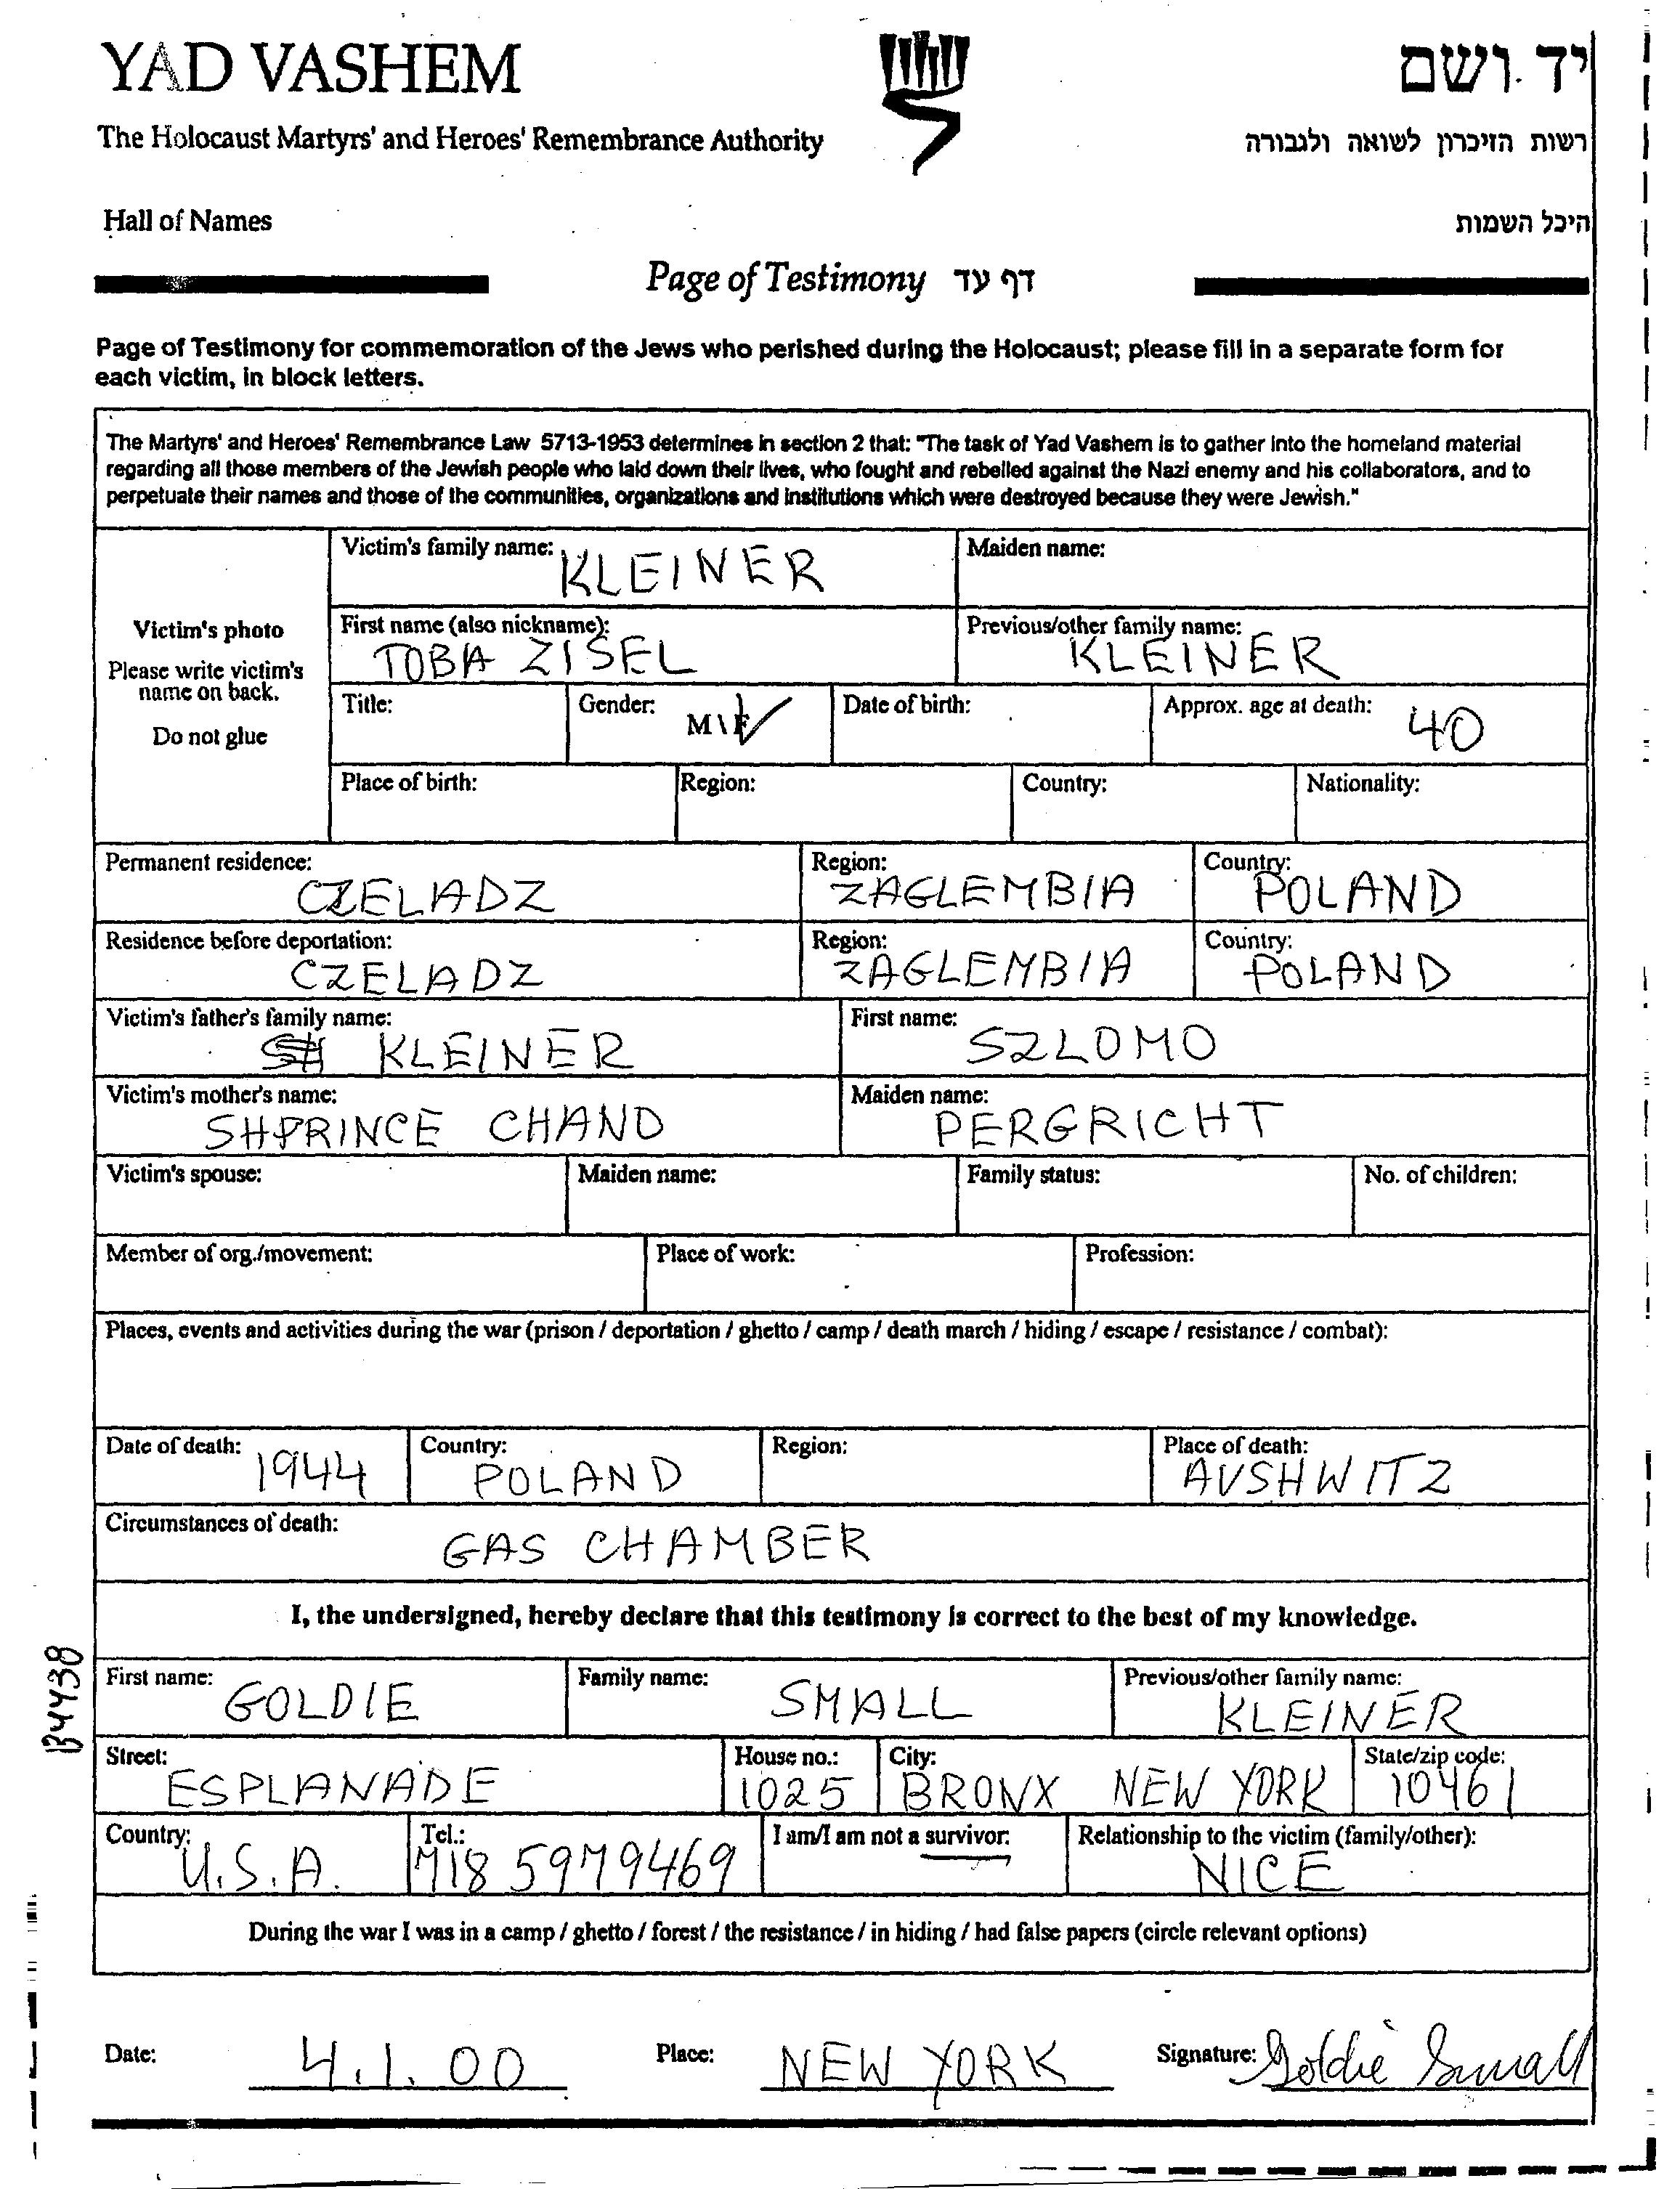 YAD VASHEM
יד ושם
The Holocaust Martyrs' and Heroes' Remembrance Authority
רשות הזיכרון לשואה ולגבורה
Hall of Names
היכל השמות
Page of Testimony דף עד
Page of Testimony for commemoration of the Jews who perished during the Holocaust; please fill in a separate form for
each victim, in block letters.
The Martyrs' and Heroes' Remembrance Law 5713-1953 determines in section 2 that: "The task of Yad Vashem is to gather into the homeland material
regarding all those members of the Jewish people who laid down their lives, who fought and rebelled against the Nazi enemy and his collaborators, and to
perpetuate their names and those of the communities, organizations and institutions which were destroyed because they were Jewish."
Victim's photo
Please write victim's
name on back.
Do not glue
Victim's family name: KLEINER
Maiden name:
First name (also nickname): TOBA ZISEL
Previous/other family name: KLEINER
Title:
Gender: M\F ✓
Date of birth:
Approx. age at death: 40
Place of birth:
Region:
Country:
Nationality:
Permanent residence: CZELADZ
Region: ZAGLEMBIA
Country: POLAND
Residence before deportation: CZELADZ
Region: ZAGLEMBIA
Country: POLAND
Victim's father's family name: KLEINER
First name: SZLOMO
Victim's mother's name: SHPRINCE CHAND
Maiden name: PERGRICHT
Victim's spouse:
Maiden name:
Family status:
No. of children:
Member of org./movement:
Place of work:
Profession:
Places, events and activities during the war (prison / deportation / ghetto / camp / death march / hiding / escape / resistance / combat):
Date of death: 1944
Country: POLAND
Region:
Place of death: AVSHWITZ
Circumstances of death: GAS CHAMBER
I, the undersigned, hereby declare that this testimony is correct to the best of my knowledge.
First name: GOLDIE
Family name: SMALL
Previous/other family name: KLEINER
Street: ESPLANADE
House no.: 1025
City: BRONX NEW YORK
State/zip code: 10461
Country: U.S.A.
Tel.: 718 5979469
I am/I am not a survivor:
Relationship to the victim (family/other): NICE
During the war I was in a camp / ghetto / forest / the resistance / in hiding / had false papers (circle relevant options)
Date: 4.1.00
Place: NEW YORK
Signature: Goldie Small
B4438